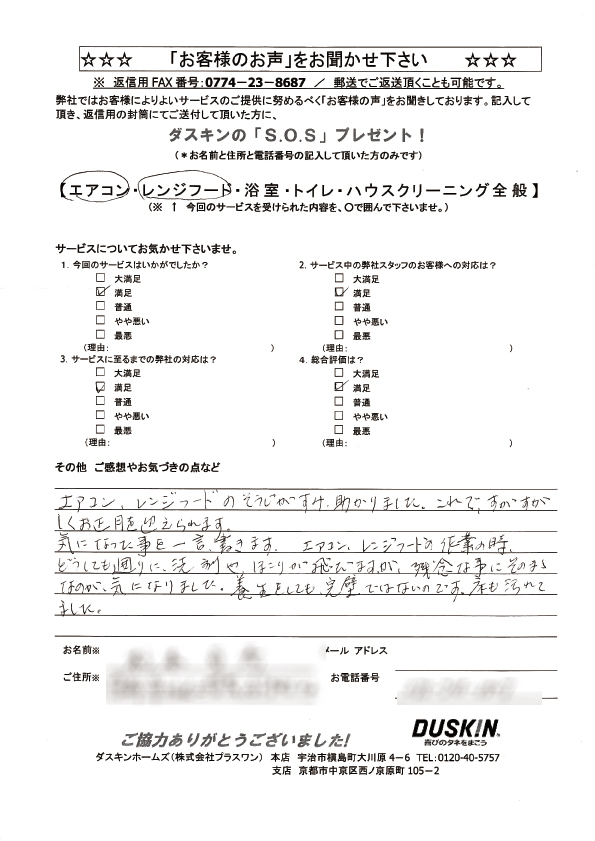 ☆☆☆ 「お客様のお声」をお聞かせ下さい ☆☆☆
※ 返信用FAX番号:0774-23-8687 / 郵送でご返送頂くことも可能です。
弊社ではお客様によりよいサービスのご提供に努めるべく「お客様の声」をお聞きしております。記入して
頂き、返信用の封筒にてご送付して頂いた方に、
ダスキンの「S.O.S」プレゼント!
(*お名前と住所と電話番号の記入して頂いた方のみです)
【エアコン・レンジフード・浴室・トイレ・ハウスクリーニング全般】
(※ ↑ 今回のサービスを受けられた内容を、〇で囲んで下さいませ。)
サービスについてお気かせ下さいませ。
1. 今回のサービスはいかがでしたか?
□ 大満足
☑ 満足
□ 普通
□ やや悪い
□ 最悪
(理由: )
2. サービス中の弊社スタッフのお客様への対応は?
□ 大満足
☑ 満足
□ 普通
□ やや悪い
□ 最悪
(理由: )
3. サービスに至るまでの弊社の対応は?
□ 大満足
☑ 満足
□ 普通
□ やや悪い
□ 最悪
(理由: )
4. 総合評価は?
□ 大満足
☑ 満足
□ 普通
□ やや悪い
□ 最悪
(理由: )
その他 ご感想やお気づきの点など
エアコン、レンジフードのそうじがすみ、助かりました。これで、すがすが
しくお正月を迎えられます。
気になった事を一言、書きます。 エアコン、レンジフードの作業の時、
どうしても周りに、洗剤や、ほこりが飛びますが、残念な事にそのまま
なのが、気になりました。養生をしても、完璧ではないのです。床も汚れて
ました。
お名前※
メール アドレス
ご住所※
お電話番号
ご協力ありがとうございました!
DUSKIN
喜びのタネをまこう
ダスキンホームズ(株式会社プラスワン) 本店 宇治市槇島町大川原4-6 TEL:0120-40-5757
支店 京都市中京区西ノ京原町105-2